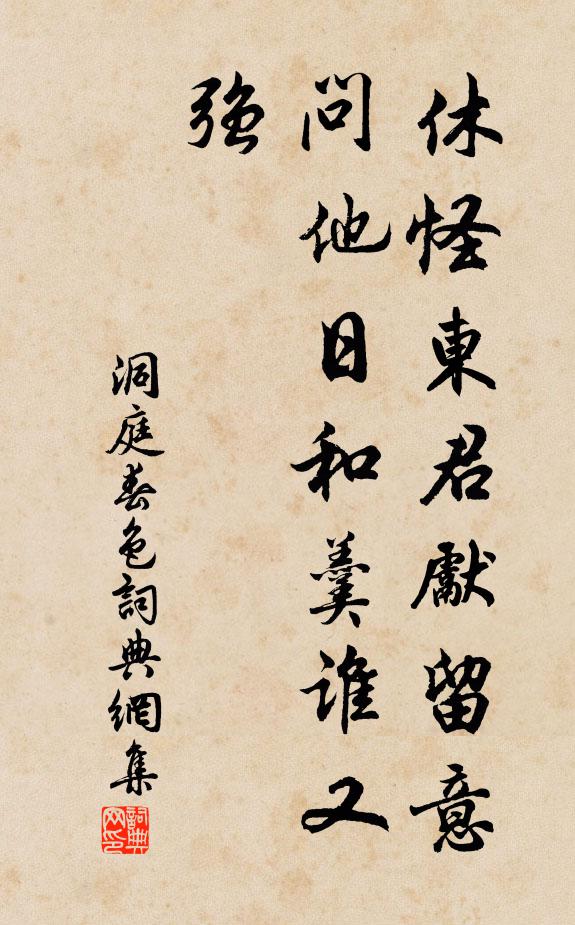 休怪東君獻留意
問他日和羹誰又
強
洞庭春色詞典網集
詞典
网印